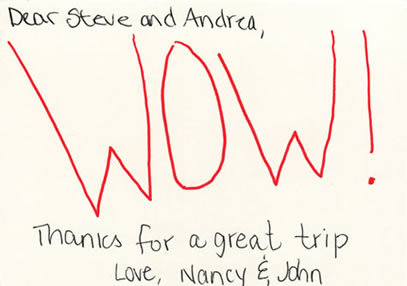 Dear Steve and Andrea,
WOW!
Thanks for a great trip
Love, Nancy & John